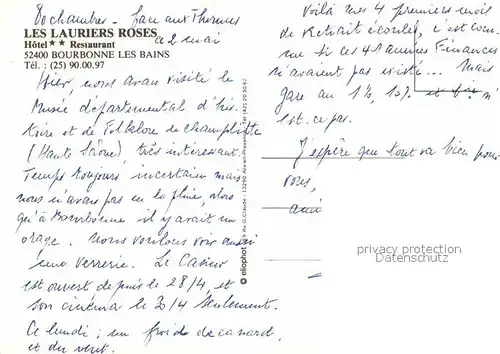 80 chambres - face aux Thermes
LES LAURIERS ROSES
ce 2 mai
Hôtel ★★ Restaurant
52400 BOURBONNE LES BAINS
Tél. : (25) 90.00.97
Hier, nous avons visité le
Musée départemental d'his
toire et de Folklore de champlitte
(Haute Saône), très interessant.
Temps toujours incertain mais
nous n'avons pas eu la pluie, alors
qu'à Bourbonne il y avait un
orage. Nous voulons voir aussi
une verrerie. Le Casino
est ouvert depuis le 28/4 et
son cinéma le 30/4 seulement.
Ce lundi : un froid de canard,
et du vent.
© eliophot Av. G. Claude - 13290 Aix-en-Provence - Tél. (42) 39.93.82
Voilà mes 4 premiers mois
de Retraite écoulés, c'est com
me si ces 41 années Finances
n'avaient pas existé... Mais
gare au 1%, 10% et n'
est-ce pas.
J'espère que tout va bien pour
vous,
ami
protection copyright
Datenschutz